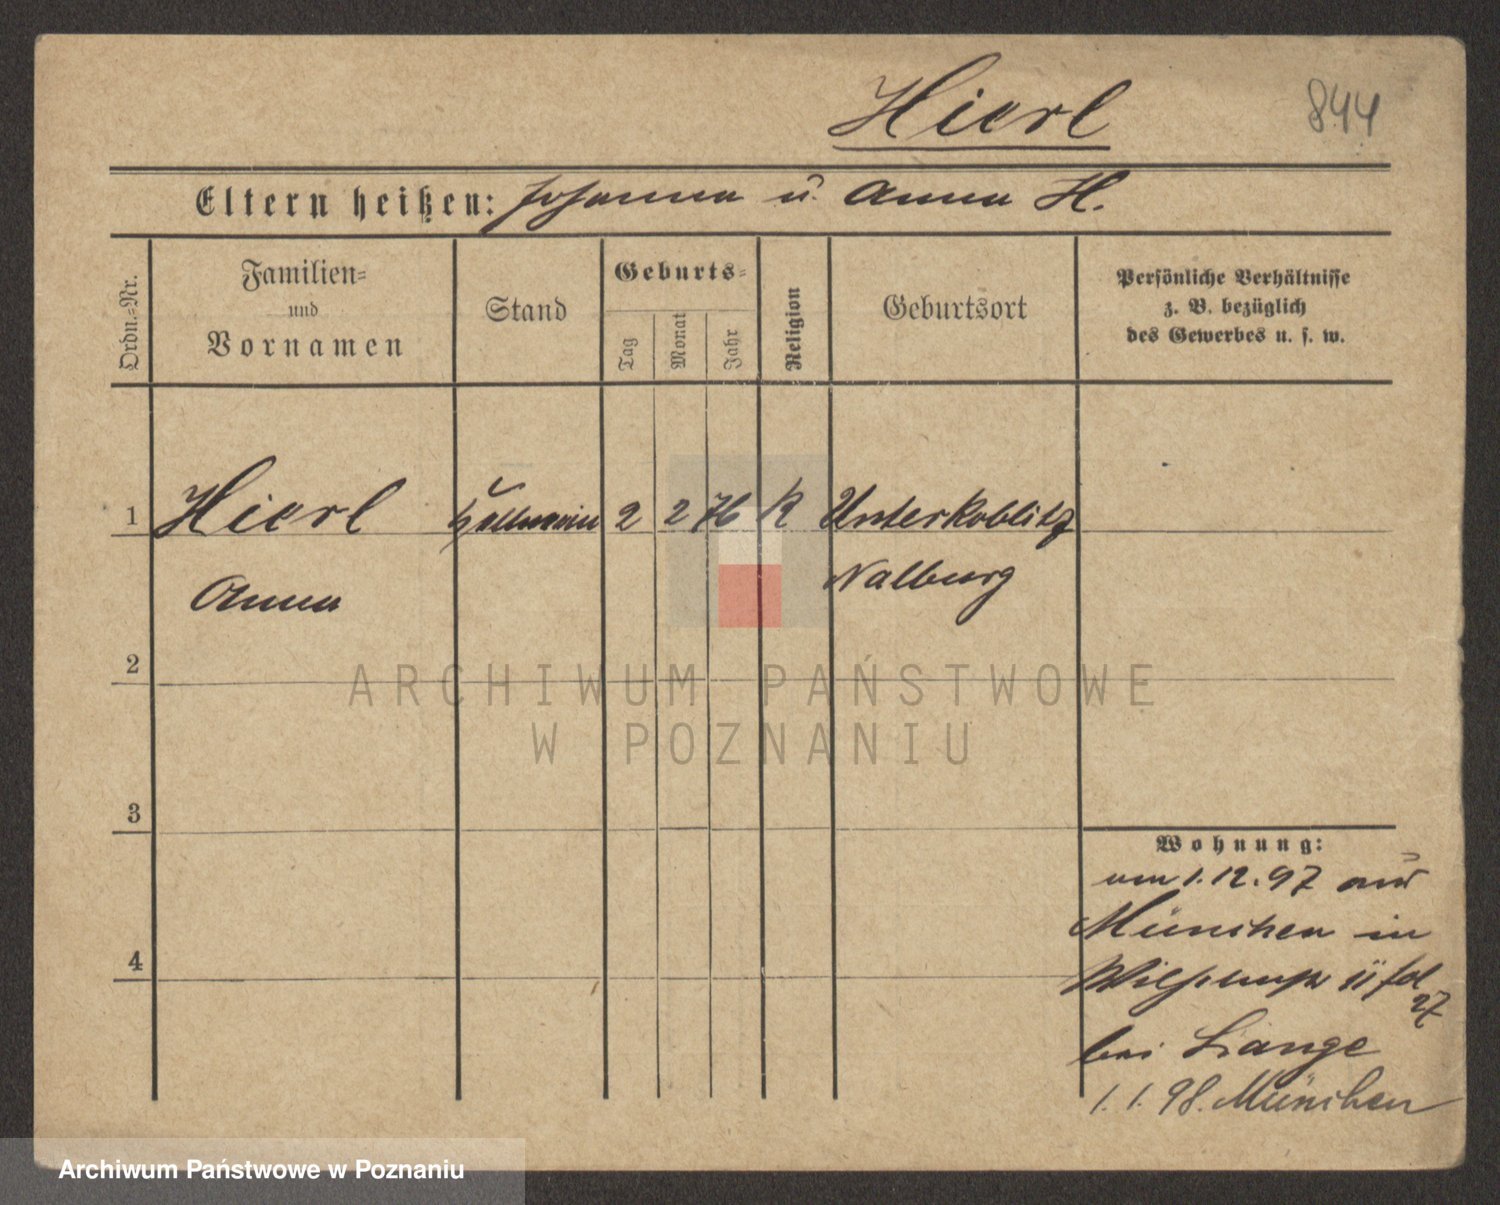 Hierl
844
Eltern heißen: Johanna u. Anna H.
Ordn.-Nr.
Familien-
und
Vornamen
Stand
Geburts-
Tag
Monat
Jahr
Religion
Geburtsort
Persönliche Verhältnisse
z. B. bezüglich
des Gewerbes u. s. w.
1 Hierl 2 2 76 K Unterkoblitz
Anna Nalburg
2
ARCHIWUM PAŃSTWOWE
W POZNANIU
3
4
Wohnung:
um 1.12.97 aus
München in
27
bei Lange
1.1.98. München
Archiwum Państwowe w Poznaniu